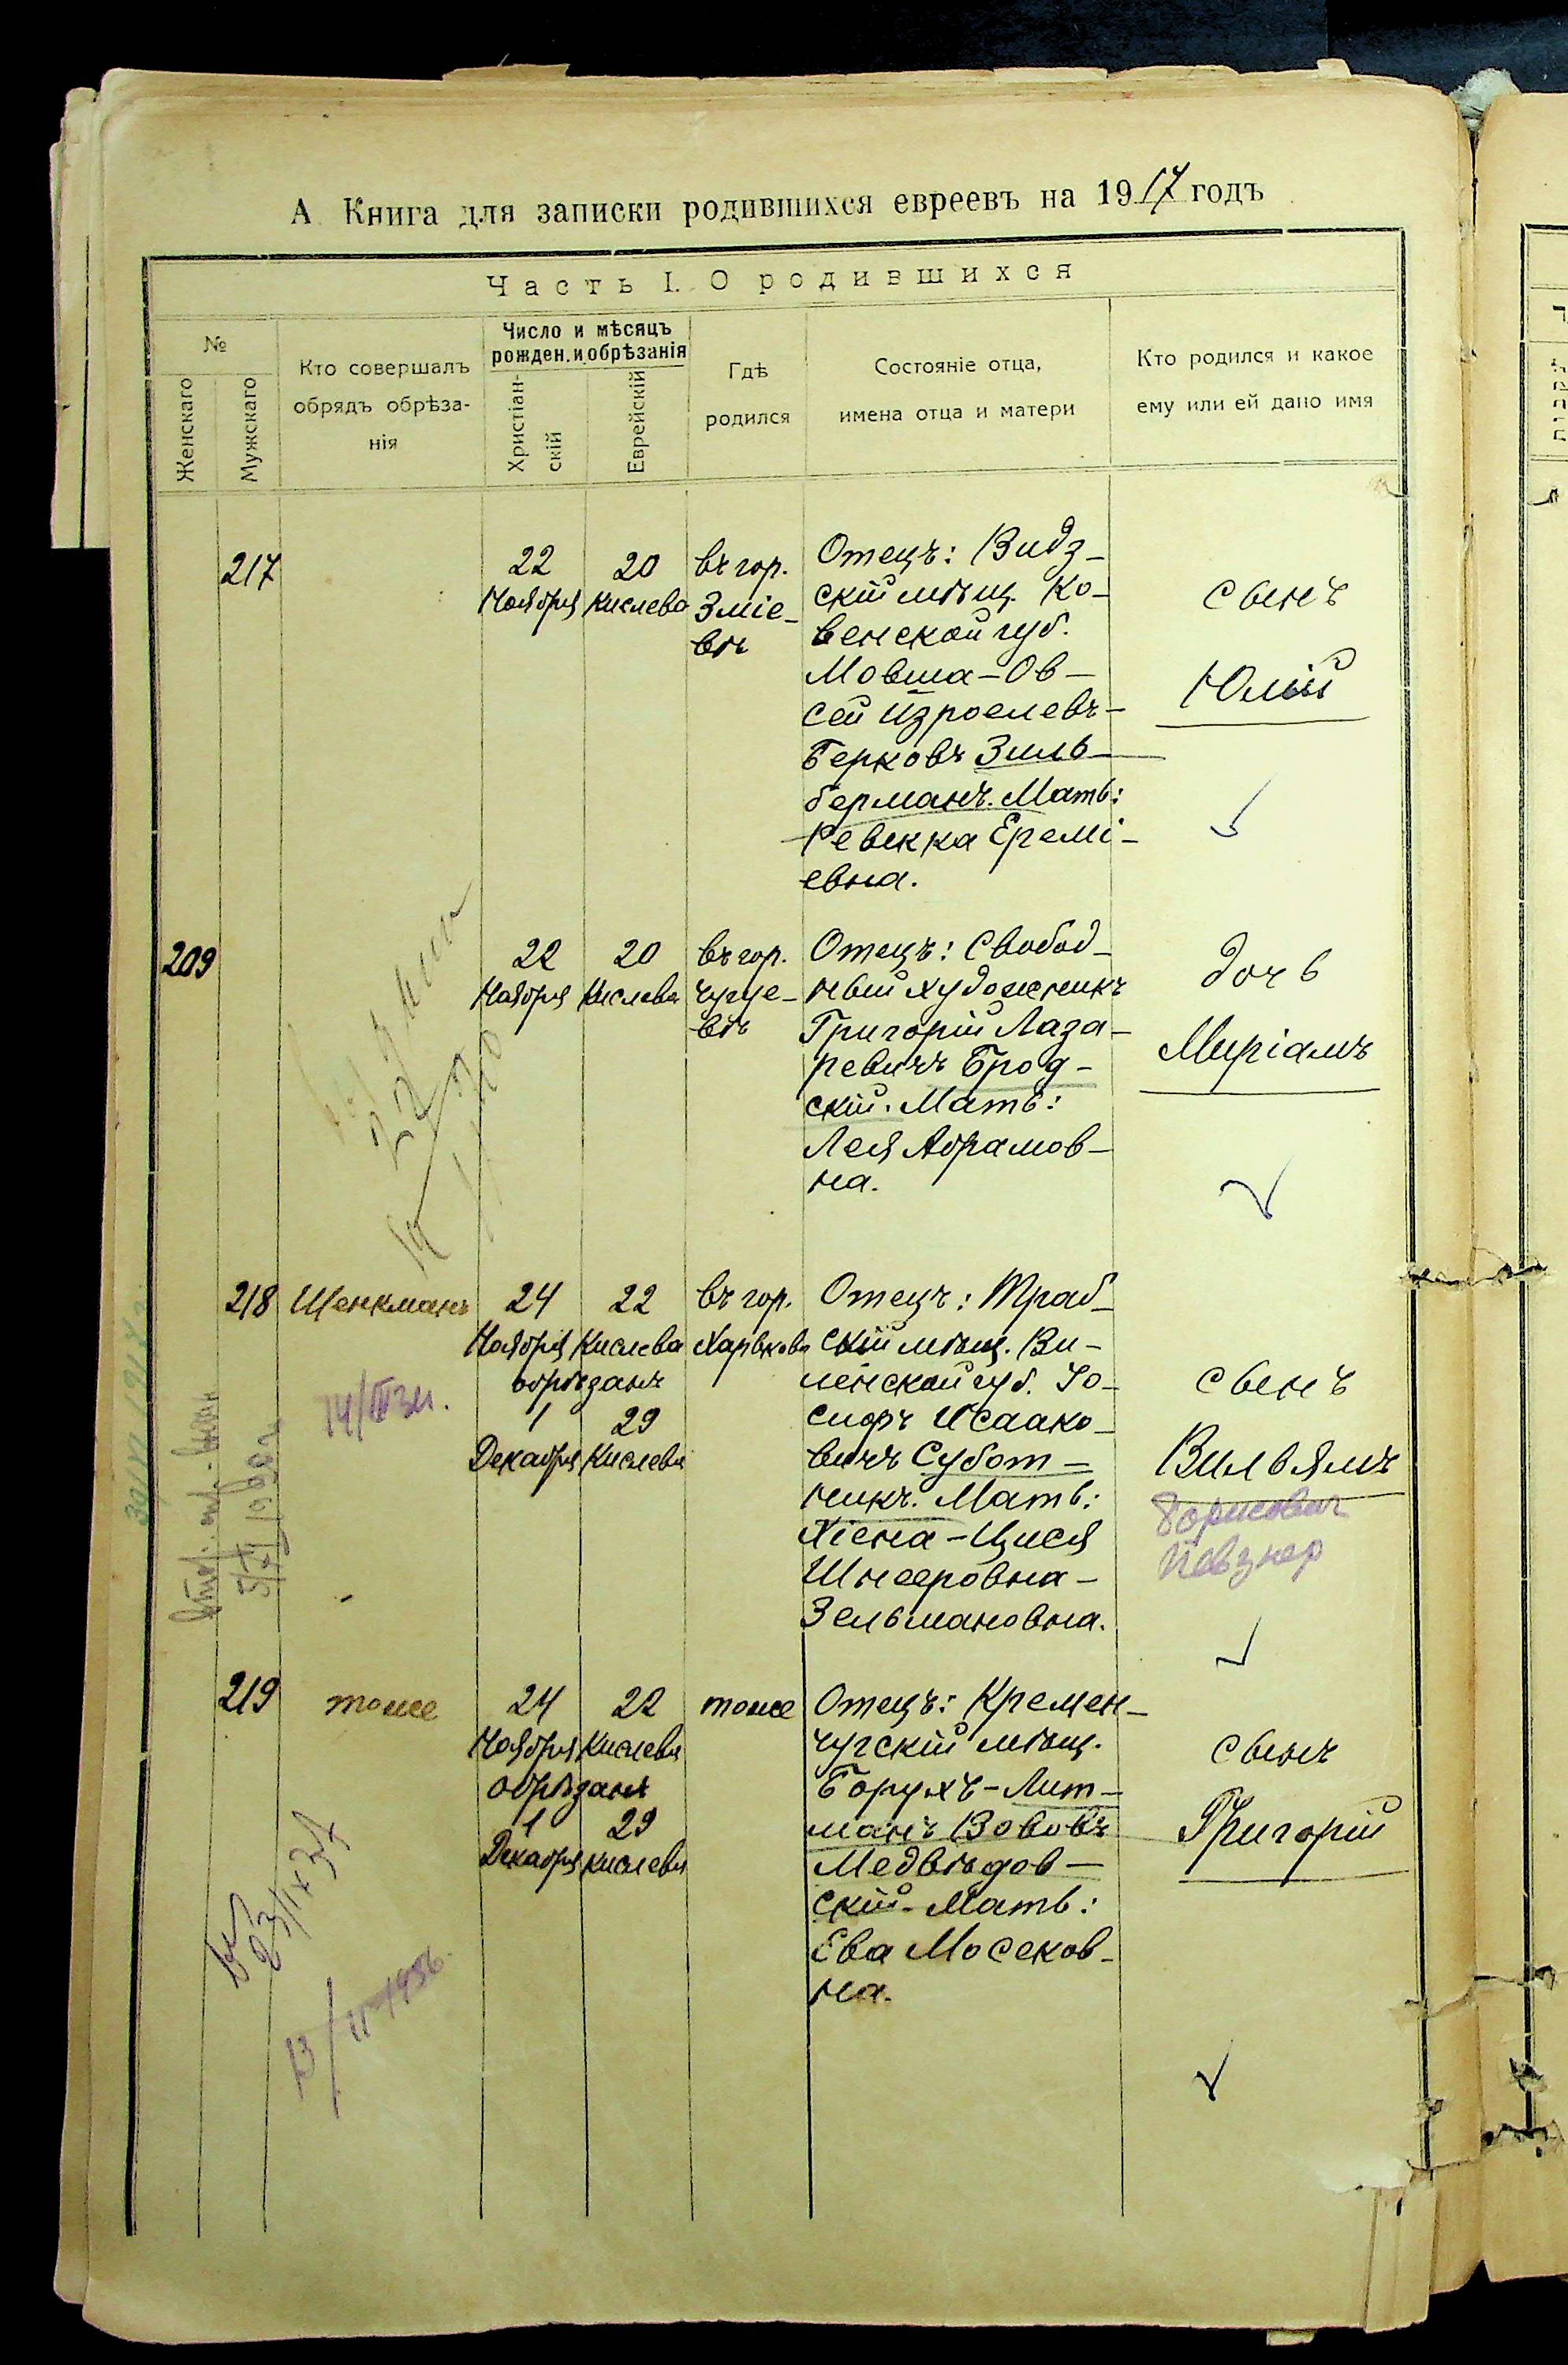 А Книга для записки родившихся евреевъ на 1917 годъ
Часть I. О родившихся
№
Женскаго
Мужскаго
Кто совершалъ
обрядъ обрѣза-
нія
Число и мѣсяцъ
рожден. и обрѣзанія
Христіан-
скій
Еврейскій
Гдѣ
родился
Состояніе отца,
имена отца и матери
Кто родился и какое
ему или ей дано имя
217
22
Ноября
20
Кислева
въ гор.
Зміе-
вѣ
Отецъ: Видз-
скій мѣщ. Ко-
венской губ.
Мовша-Ов-
сей Изроелевъ-
Берковъ Зиль-
берманъ. Мать:
Ревекка Еремі-
евна.
сынъ
Юлій
209
22
Ноября
20
Кислева
въ гор.
Чугуе-
вѣ
Отецъ: Свобод-
ный художникъ
Григорій Лаза-
ревичъ Брод-
скій. Мать:
Лея Абрамов-
на.
дочь
Миріамъ
218
Шенкманъ
24
Ноября
22
Кислева
обрѣзанъ
1
Декабря
29
Кислева
въ гор.
Харьковѣ
Отецъ: Траб-
скій мѣщ. Ви-
ленской губ. Іо-
сифъ Исаако-
вичъ Субот-
никъ. Мать:
Хіена-Цися
Шнееровна-
Зельмановна.
сынъ
Вильямъ
Борисович
Певзнер
14/III 34.
219
тоже
24
Ноября
22
Кислева
обрѣзанъ
1
Декабря
29
Кислева
тоже
Отецъ: Кремен-
чугскій мѣщ.
Борухъ-Лит-
манъ Вововъ
Медвѣдов-
скій. Мать:
Ева Мосеков-
на.
сынъ
Григорій